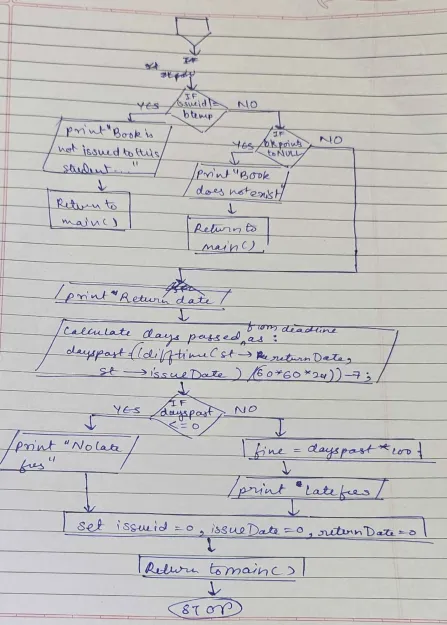 IF
IF
issueid !=
btemp
YES
NO
print "Book is
not issued to this
student...."
IF
bk points
to NULL
YES
NO
print "Book
does not exist"
Return to
main()
Return to
main()
print "Return date
Calculate days passed from deadline
as:
dayspast = (difftime(st → returnDate,
st → issueDate) / (60*60*24)) - 7;
IF
dayspast
<= 0
YES
NO
print "No late
fees"
fine = dayspast * 100;
print "late fees
set issueid = 0, issueDate = 0, returnDate = 0
Return to main()
STOP